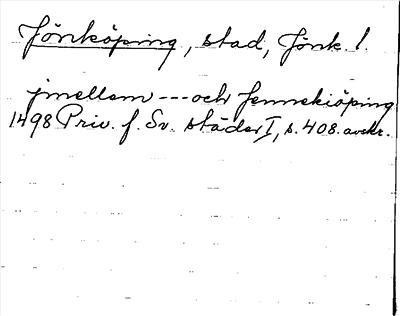 Jönköping, stad, Jönk. l.
jmellem --- och Jennekiöping
1498 Priv. f. Sv. städer I, s. 408. avskr.